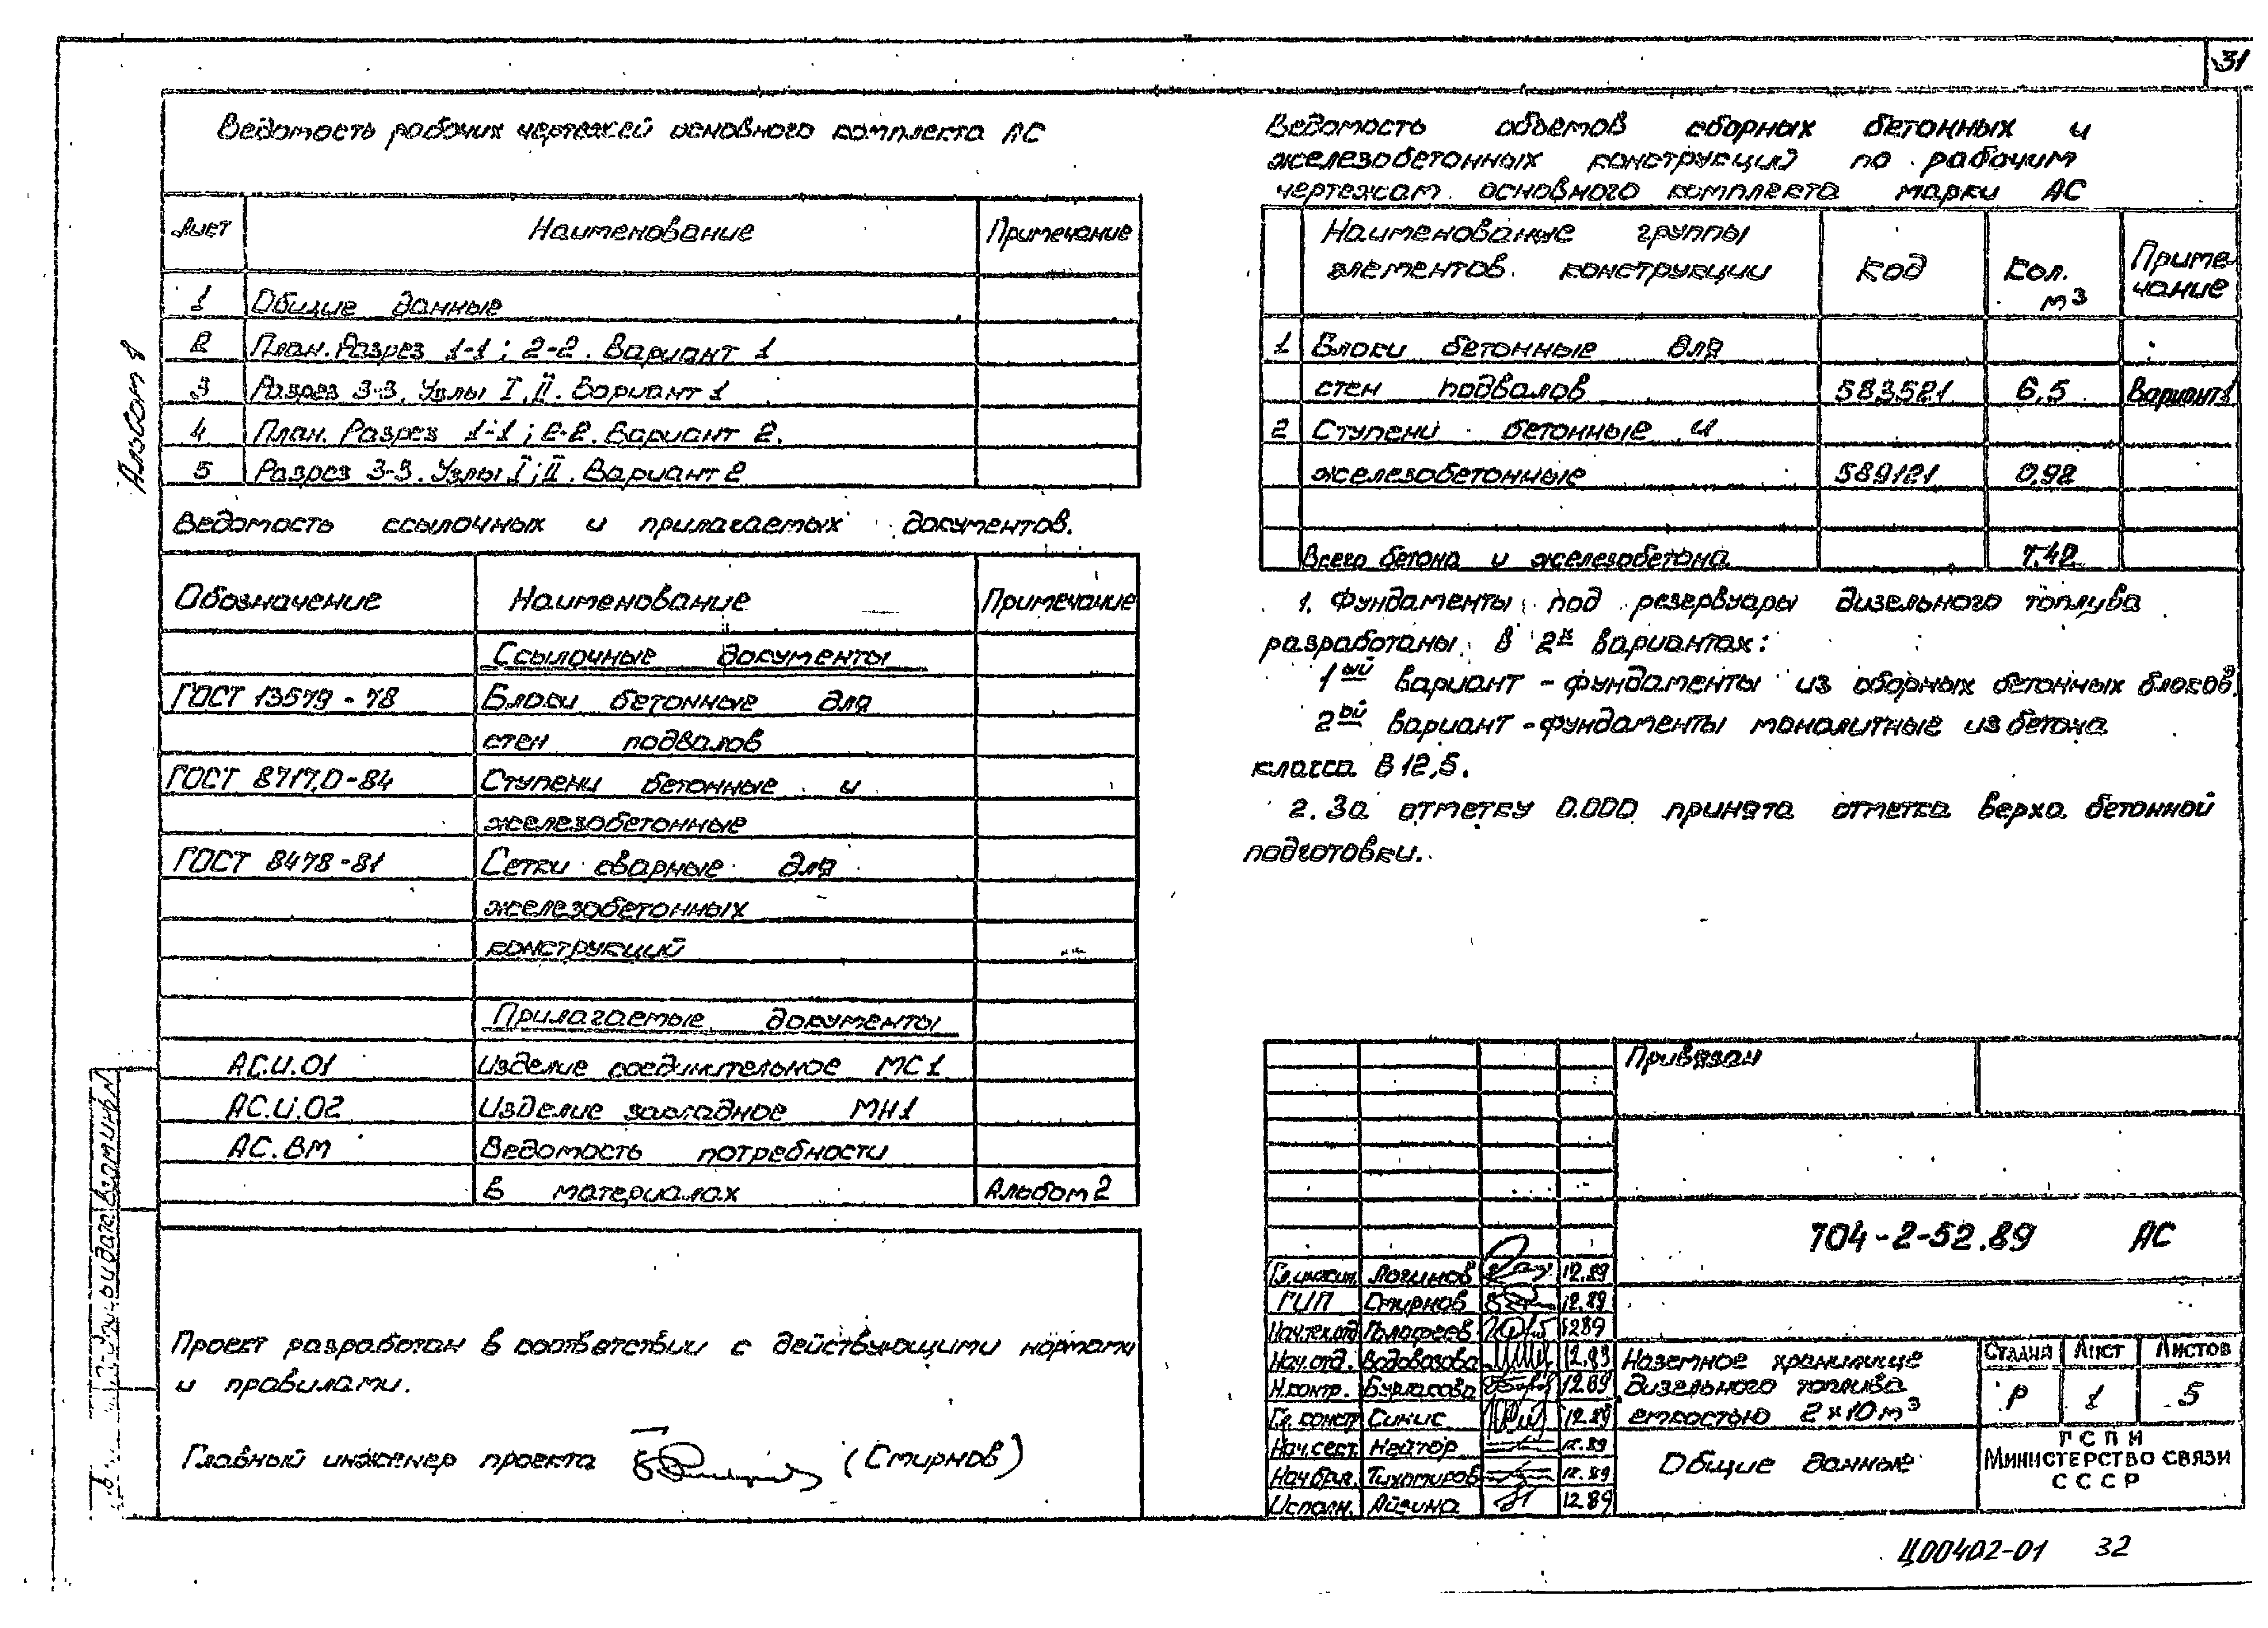 31
Альбом 1
Ведомость рабочих чертежей основного комплекта АС
Лист Наименование Примечание
1 Общие данные
2 План. Разрез 1-1; 2-2. Вариант 1
3 Разрез 3-3. Узлы I, II. Вариант 1
4 План. Разрез 1-1; 2-2. Вариант 2.
5 Разрез 3-3. Узлы I; II. Вариант 2
Ведомость ссылочных и прилагаемых документов.
Обозначение Наименование Примечание
Ссылочные документы
ГОСТ 13579-78 Блоки бетонные для
стен подвалов
ГОСТ 8717.0-84 Ступени бетонные и
железобетонные
ГОСТ 8478-81 Сетки сварные для
железобетонных
конструкций
Прилагаемые документы
АС.И.01 Изделие соединительное МС1
АС.И.02 Изделие закладное МН1
АС.ВМ Ведомость потребности
в материалах Альбом 2
Проект разработан в соответствии с действующими нормами
и правилами.
Главный инженер проекта (Смирнов)
Ведомость объемов сборных бетонных и
железобетонных конструкций по рабочим
чертежам основного комплекта марки АС
Наименование группы
элементов конструкции Код Кол. м³ Приме-
чание
1 Блоки бетонные для
стен подвалов 583521 6,5 Вариант 1
2 Ступени бетонные и
железобетонные 589121 0,92
Всего бетона и железобетона 7,42
1. Фундаменты под резервуары дизельного топлива
разработаны в 2х вариантах:
1ый вариант - фундаменты из сборных бетонных блоков.
2ой вариант - фундаменты монолитные из бетона
класса В12,5.
2. За отметку 0.000 принята отметка верха бетонной
подготовки.
Привязан
704-2-52.89 АС
Гл.инжин. Логинов 12.89
ГИП Смирнов 12.89
Нач.тех.отд 1289
Нач.отд. Водовозова 12.89
Н.контр. Бурлакова 12.89
Гр. констр Синис 12.89
Нач.сект. Нейтор 12.89
Нач.бриг. Тихомиров 12.89
Исполн. Айзина 12.89
Наземное хранилище
дизельного топлива
емкостью 2×10м³
Стадия Лист Листов
Р 1 5
Общие данные
ГСПИ
Министерство связи
СССР
Ц00402-01 32